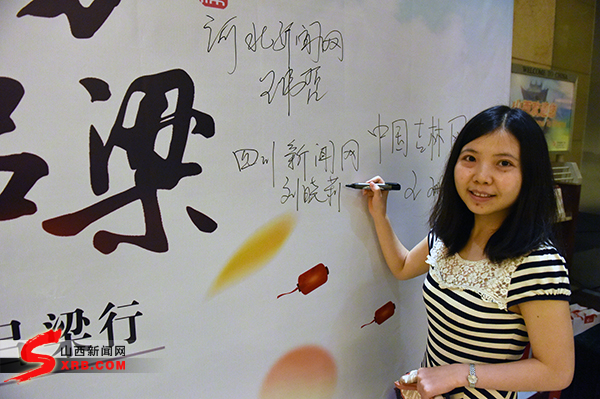 河北新闻网
四川新闻网
刘晓莉
中国吉林网
吕梁
吕梁行
山西新闻网
SXRB.COM